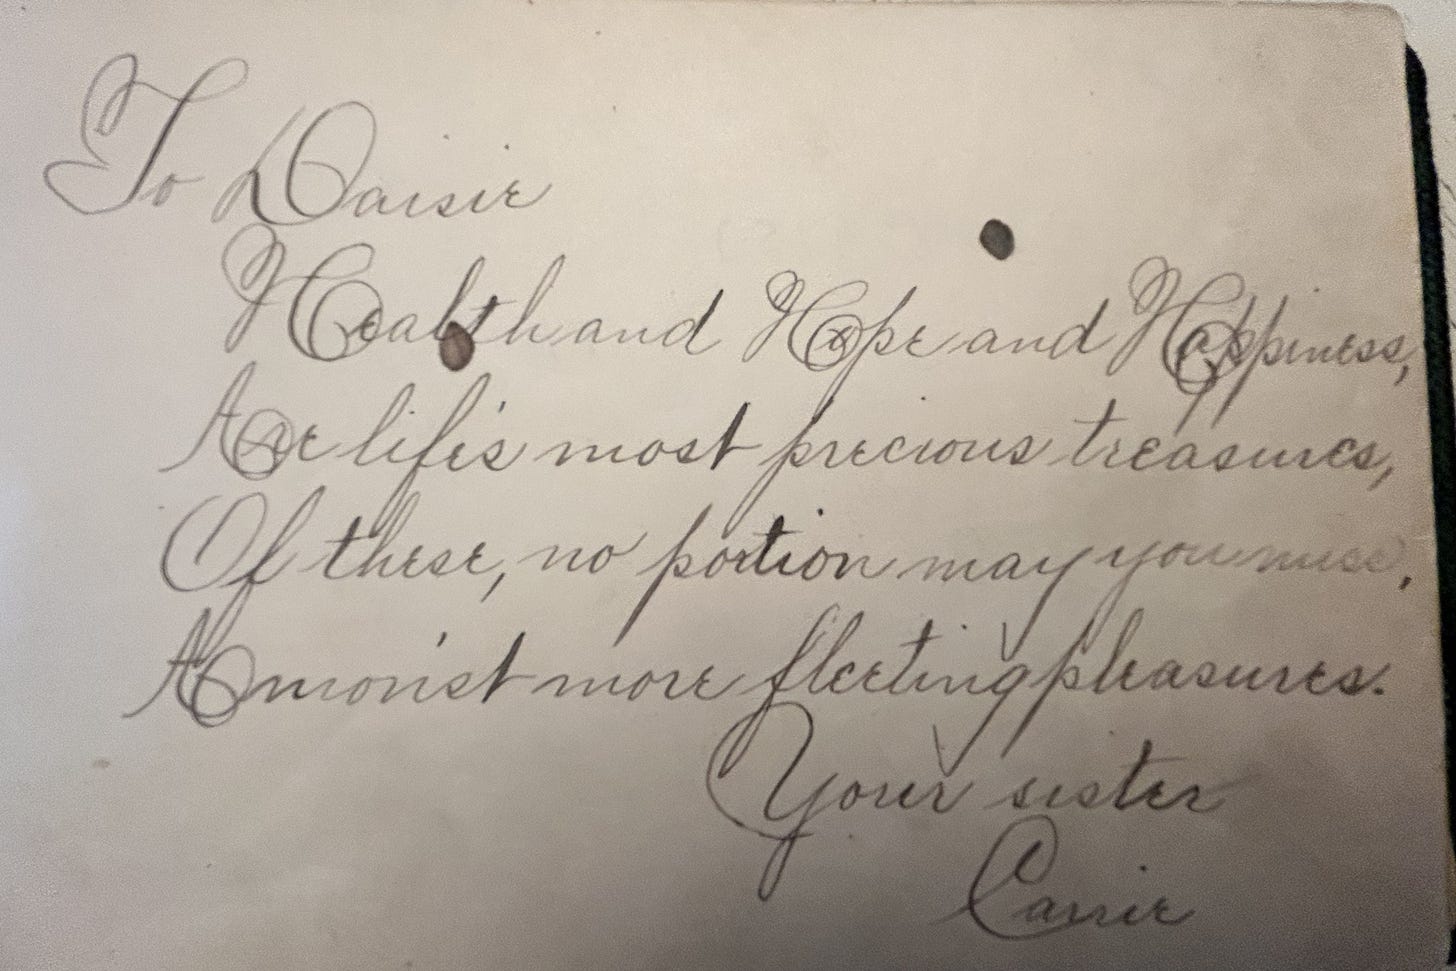 To Daisie
Health and Hope and Happiness,
Are life's most precious treasures,
Of these, no portion may you miss,
Amon'st more fleeting pleasures.
Your sister
Carrie